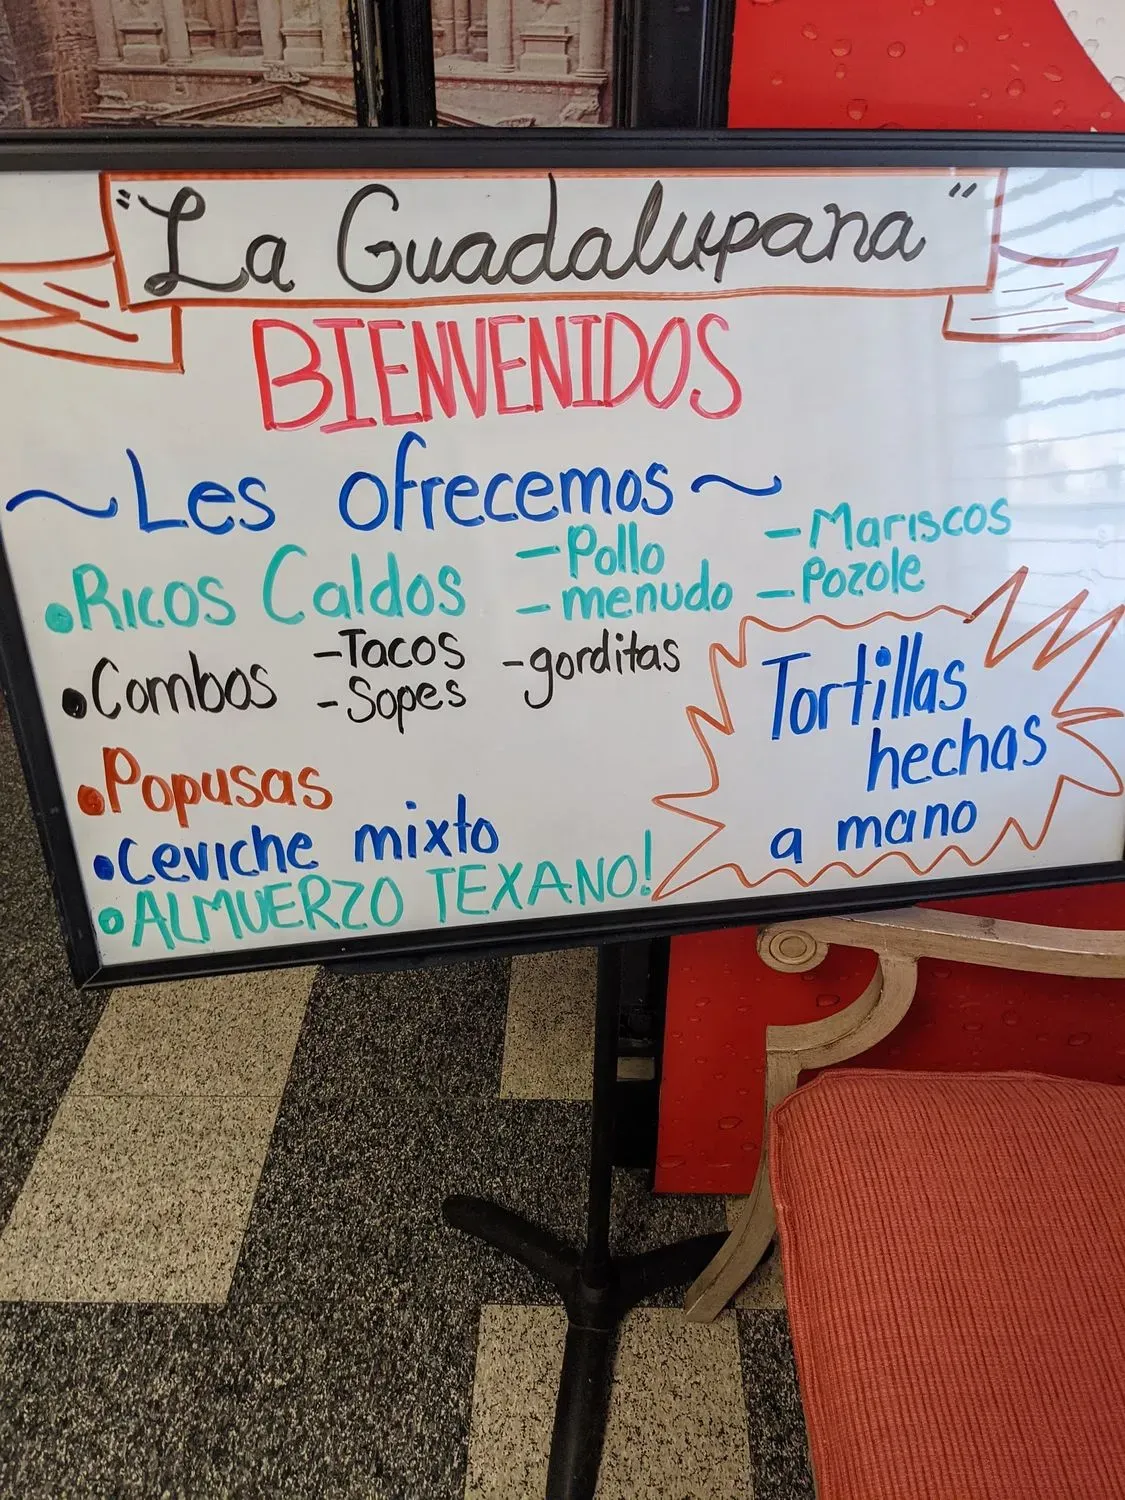 "La Guadalupana"
BIENVENIDOS
~Les ofrecemos~
•Ricos Caldos -Pollo -Mariscos
-menudo -Pozole
•Combos -Tacos -gorditas
-Sopes
•Popusas
•Ceviche mixto
•ALMUERZO TEXANO!
Tortillas
hechas
a mano